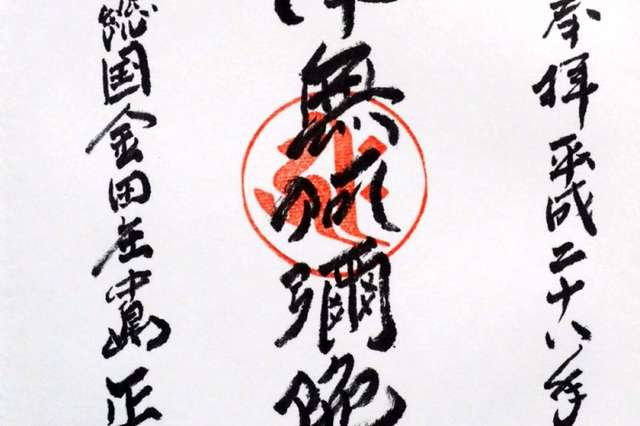 奉拝 平成二十八年
無阿彌陀
総国金田庄中島 正